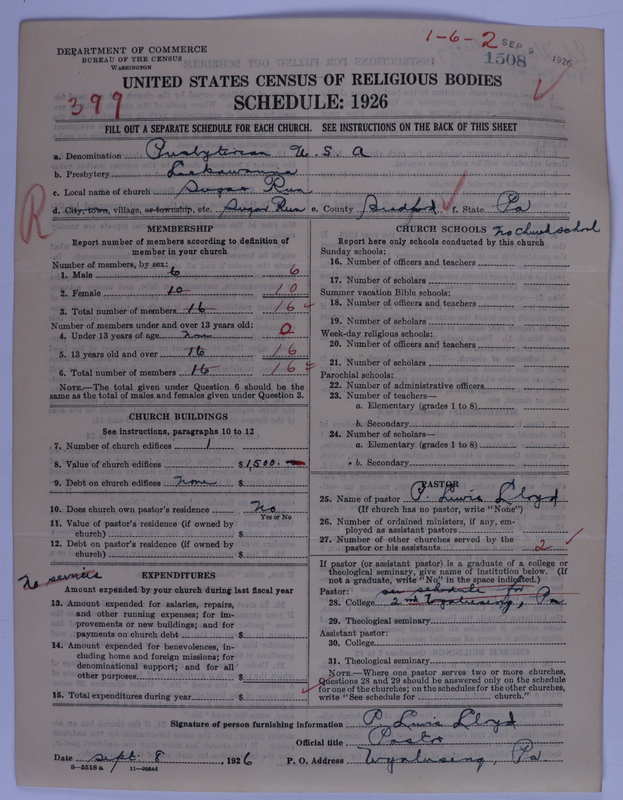 1-6-2 SEP 9 1926
1508
DEPARTMENT OF COMMERCE
BUREAU OF THE CENSUS
WASHINGTON
UNITED STATES CENSUS OF RELIGIOUS BODIES
399
SCHEDULE: 1926
FILL OUT A SEPARATE SCHEDULE FOR EACH CHURCH. SEE INSTRUCTIONS ON THE BACK OF THIS SHEET
a. Denomination Presbyterian U. S. A
b. Presbytery Lackawanna
c. Local name of church Sugar Run
R
d. City, town, village, or township, etc. Sugar Run e. County Bradford f. State Pa
MEMBERSHIP
Report number of members according to definition of
member in your church
Number of members, by sex:
1. Male 6 6
2. Female 10 10
3. Total number of members 16 16
Number of members under and over 13 years old:
4. Under 13 years of age none 0
5. 13 years old and over 16 16
6. Total number of members 16 16
NOTE.—The total given under Question 6 should be
same as the total of males and females given under Question 3.
CHURCH BUILDINGS
See instructions, paragraphs 10 to 12
7. Number of church edifices 1
8. Value of church edifices $1,500.
9. Debt on church edifices none $
10. Does church own pastor's residence No
Yes or No
11. Value of pastor's residence (if owned by
church) $
12. Debt on pastor's residence (if owned by
church) $
No services
EXPENDITURES
Amount expended by your church during last fiscal year
13. Amount expended for salaries, repairs,
and other running expenses; for im-
provements or new buildings; and for
payments on church debt $
14. Amount expended for benevolences, in-
cluding home and foreign missions; for
denominational support; and for all
other purposes $
15. Total expenditures during year $
CHURCH SCHOOLS No church school
Report here only schools conducted by this church
Sunday schools:
16. Number of officers and teachers
17. Number of scholars
Summer vacation Bible schools:
18. Number of officers and teachers
19. Number of scholars
Week-day religious schools:
20. Number of officers and teachers
21. Number of scholars
Parochial schools:
22. Number of administrative officers
23. Number of teachers—
a. Elementary (grades 1 to 8)
b. Secondary
24. Number of scholars—
a. Elementary (grades 1 to 8)
b. Secondary
PASTOR
25. Name of pastor P. Lewis Lloyd
(If church has no pastor, write "None")
26. Number of ordained ministers, if any, em-
ployed as assistant pastors
27. Number of other churches served by the
pastor or his assistants 2
If pastor (or assistant pastor) is a graduate of a college or
theological seminary, give name of institution below. (If
not a graduate, write "No" in the space indicated.)
Pastor: see schedule for
28. College 2nd Wyalusing, Pa
29. Theological seminary
Assistant pastor:
30. College
31. Theological seminary
NOTE.—Where one pastor serves two or more churches,
Questions 28 and 29 should be answered only on the schedule
for one of the churches; on the schedules for the other churches,
write "See schedule for church."
Signature of person furnishing information P. Lewis Lloyd
Official title Pastor
Date Sept 8, 1926 P. O. Address Wyalusing, Pa.
8-5518a